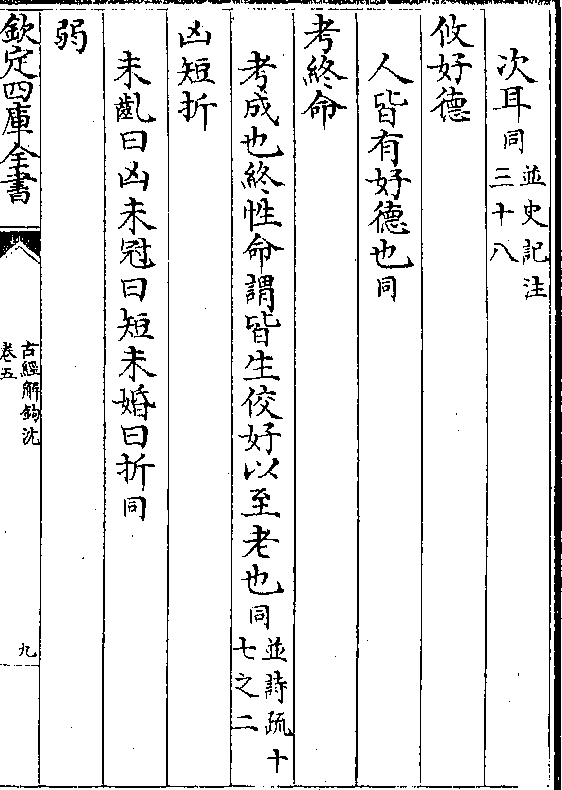 次耳同並史記注三十八
攸好德
人皆有好德也同
考終命
考成也終性命謂皆生佼好以至老也同並詩疏十七之二
凶短折
未齓曰凶未冠曰短未婚曰折同
弱
欽定四庫全書
古經解鉤沈
卷五
九